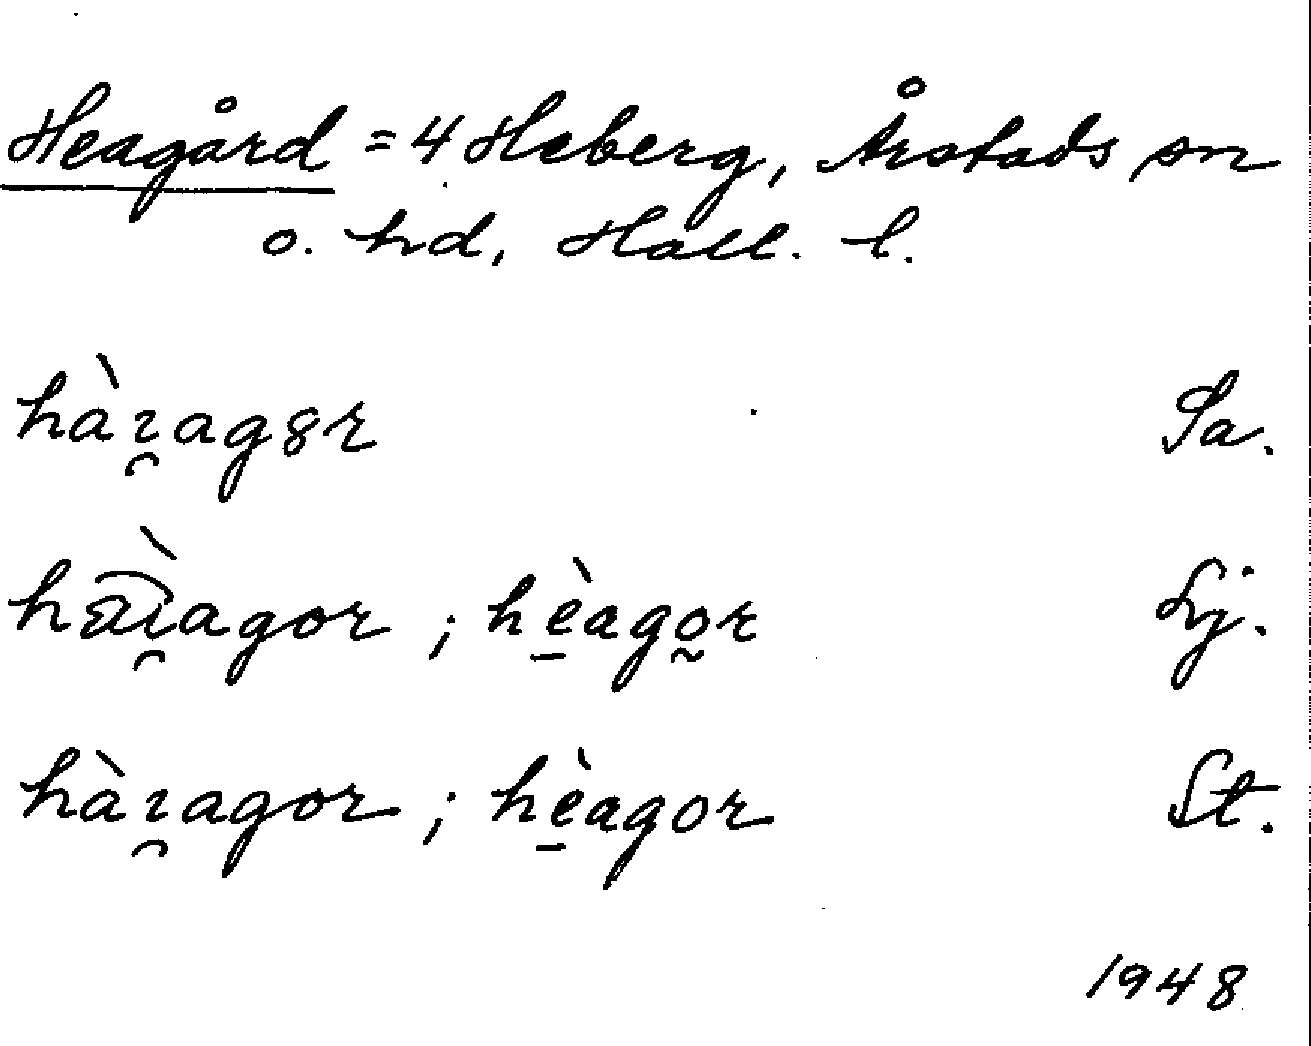 Heagård = 4 Heberg, Årstads sn
o. hd, Hall. l.
hàɪ̯ag8r Sa.
ha͡ɪ̯̀agor ; hè̱ago̰r Lj.
hàɪ̯agor ; hè̱agor St.
1948